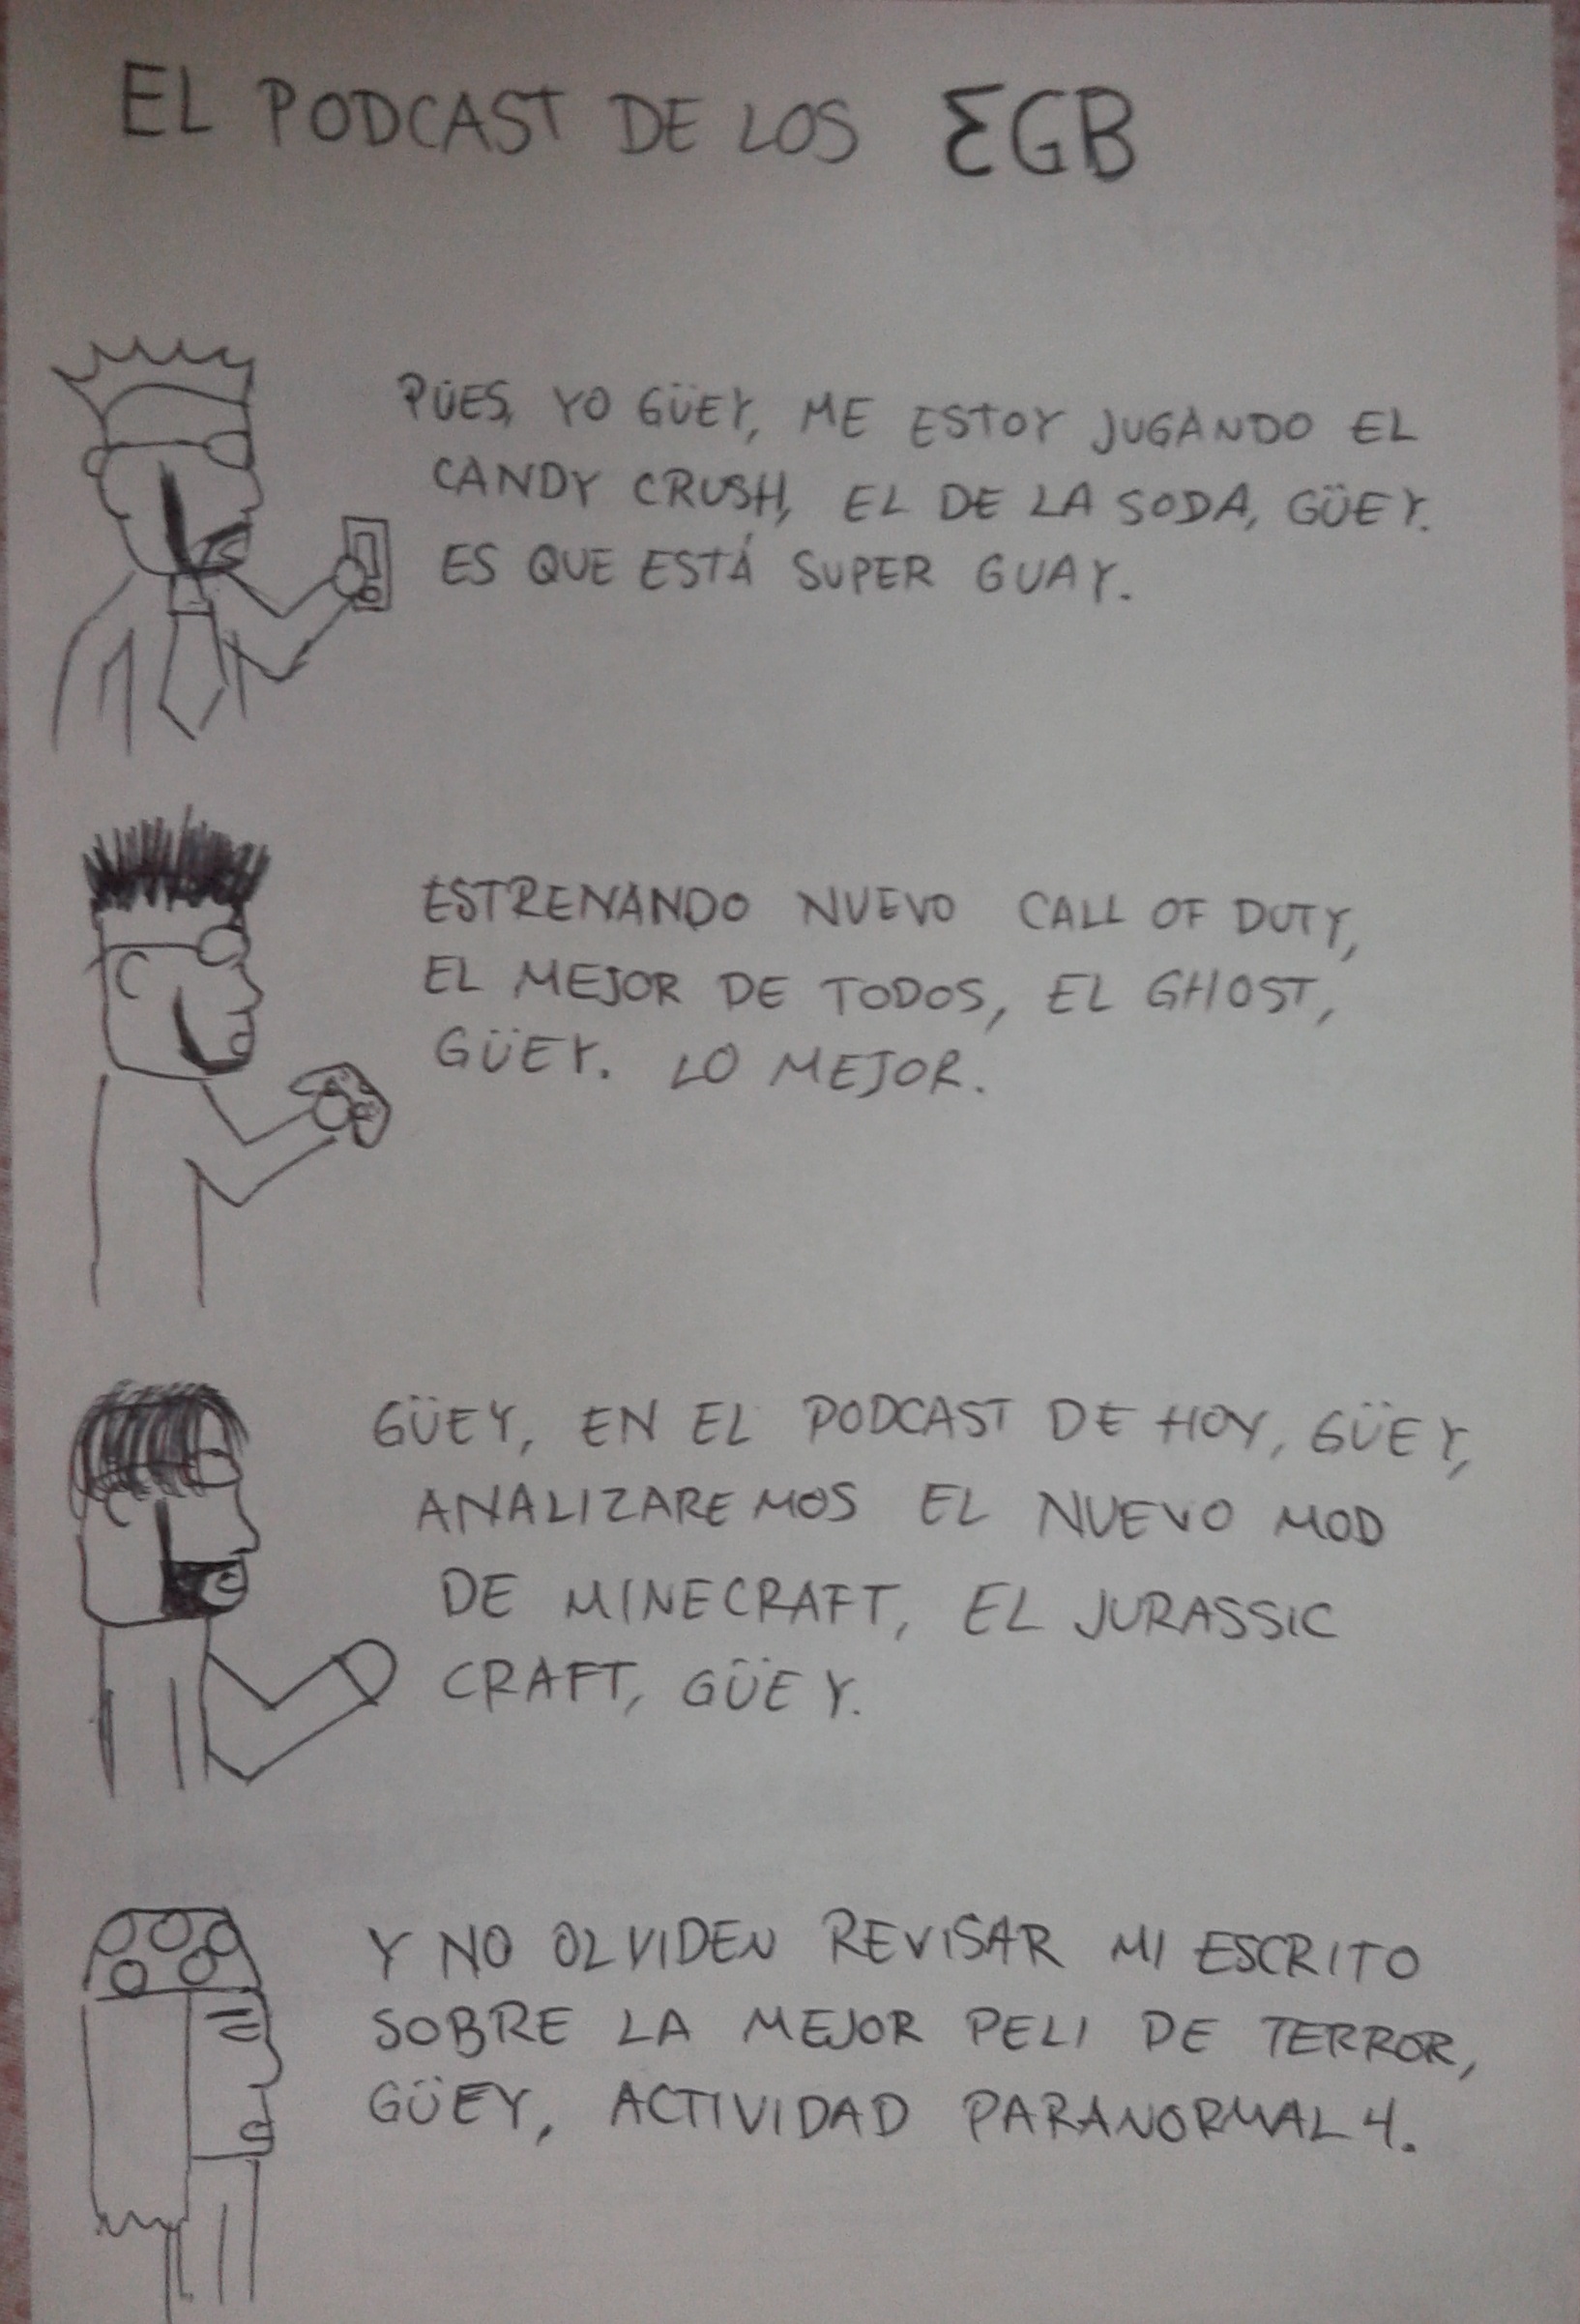 EL PODCAST DE LOS ƸGB
PÜES, YO GÜEY, ME ESTOY JUGANDO EL
CANDY CRUSH, EL DE LA SODA, GÜEY.
ES QUE ESTÁ SUPER GUAY.
ESTRENANDO NUEVO CALL OF DUTY,
EL MEJOR DE TODOS, EL GHOST,
GÜEY. LO MEJOR.
GÜEY, EN EL PODCAST DE HOY, GÜEY,
ANALIZAREMOS EL NUEVO MOD
DE MINECRAFT, EL JURASSIC
CRAFT, GÜEY.
Y NO OLVIDEN REVISAR MI ESCRITO
SOBRE LA MEJOR PELI DE TERROR,
GÜEY, ACTIVIDAD PARANORMAL 4.